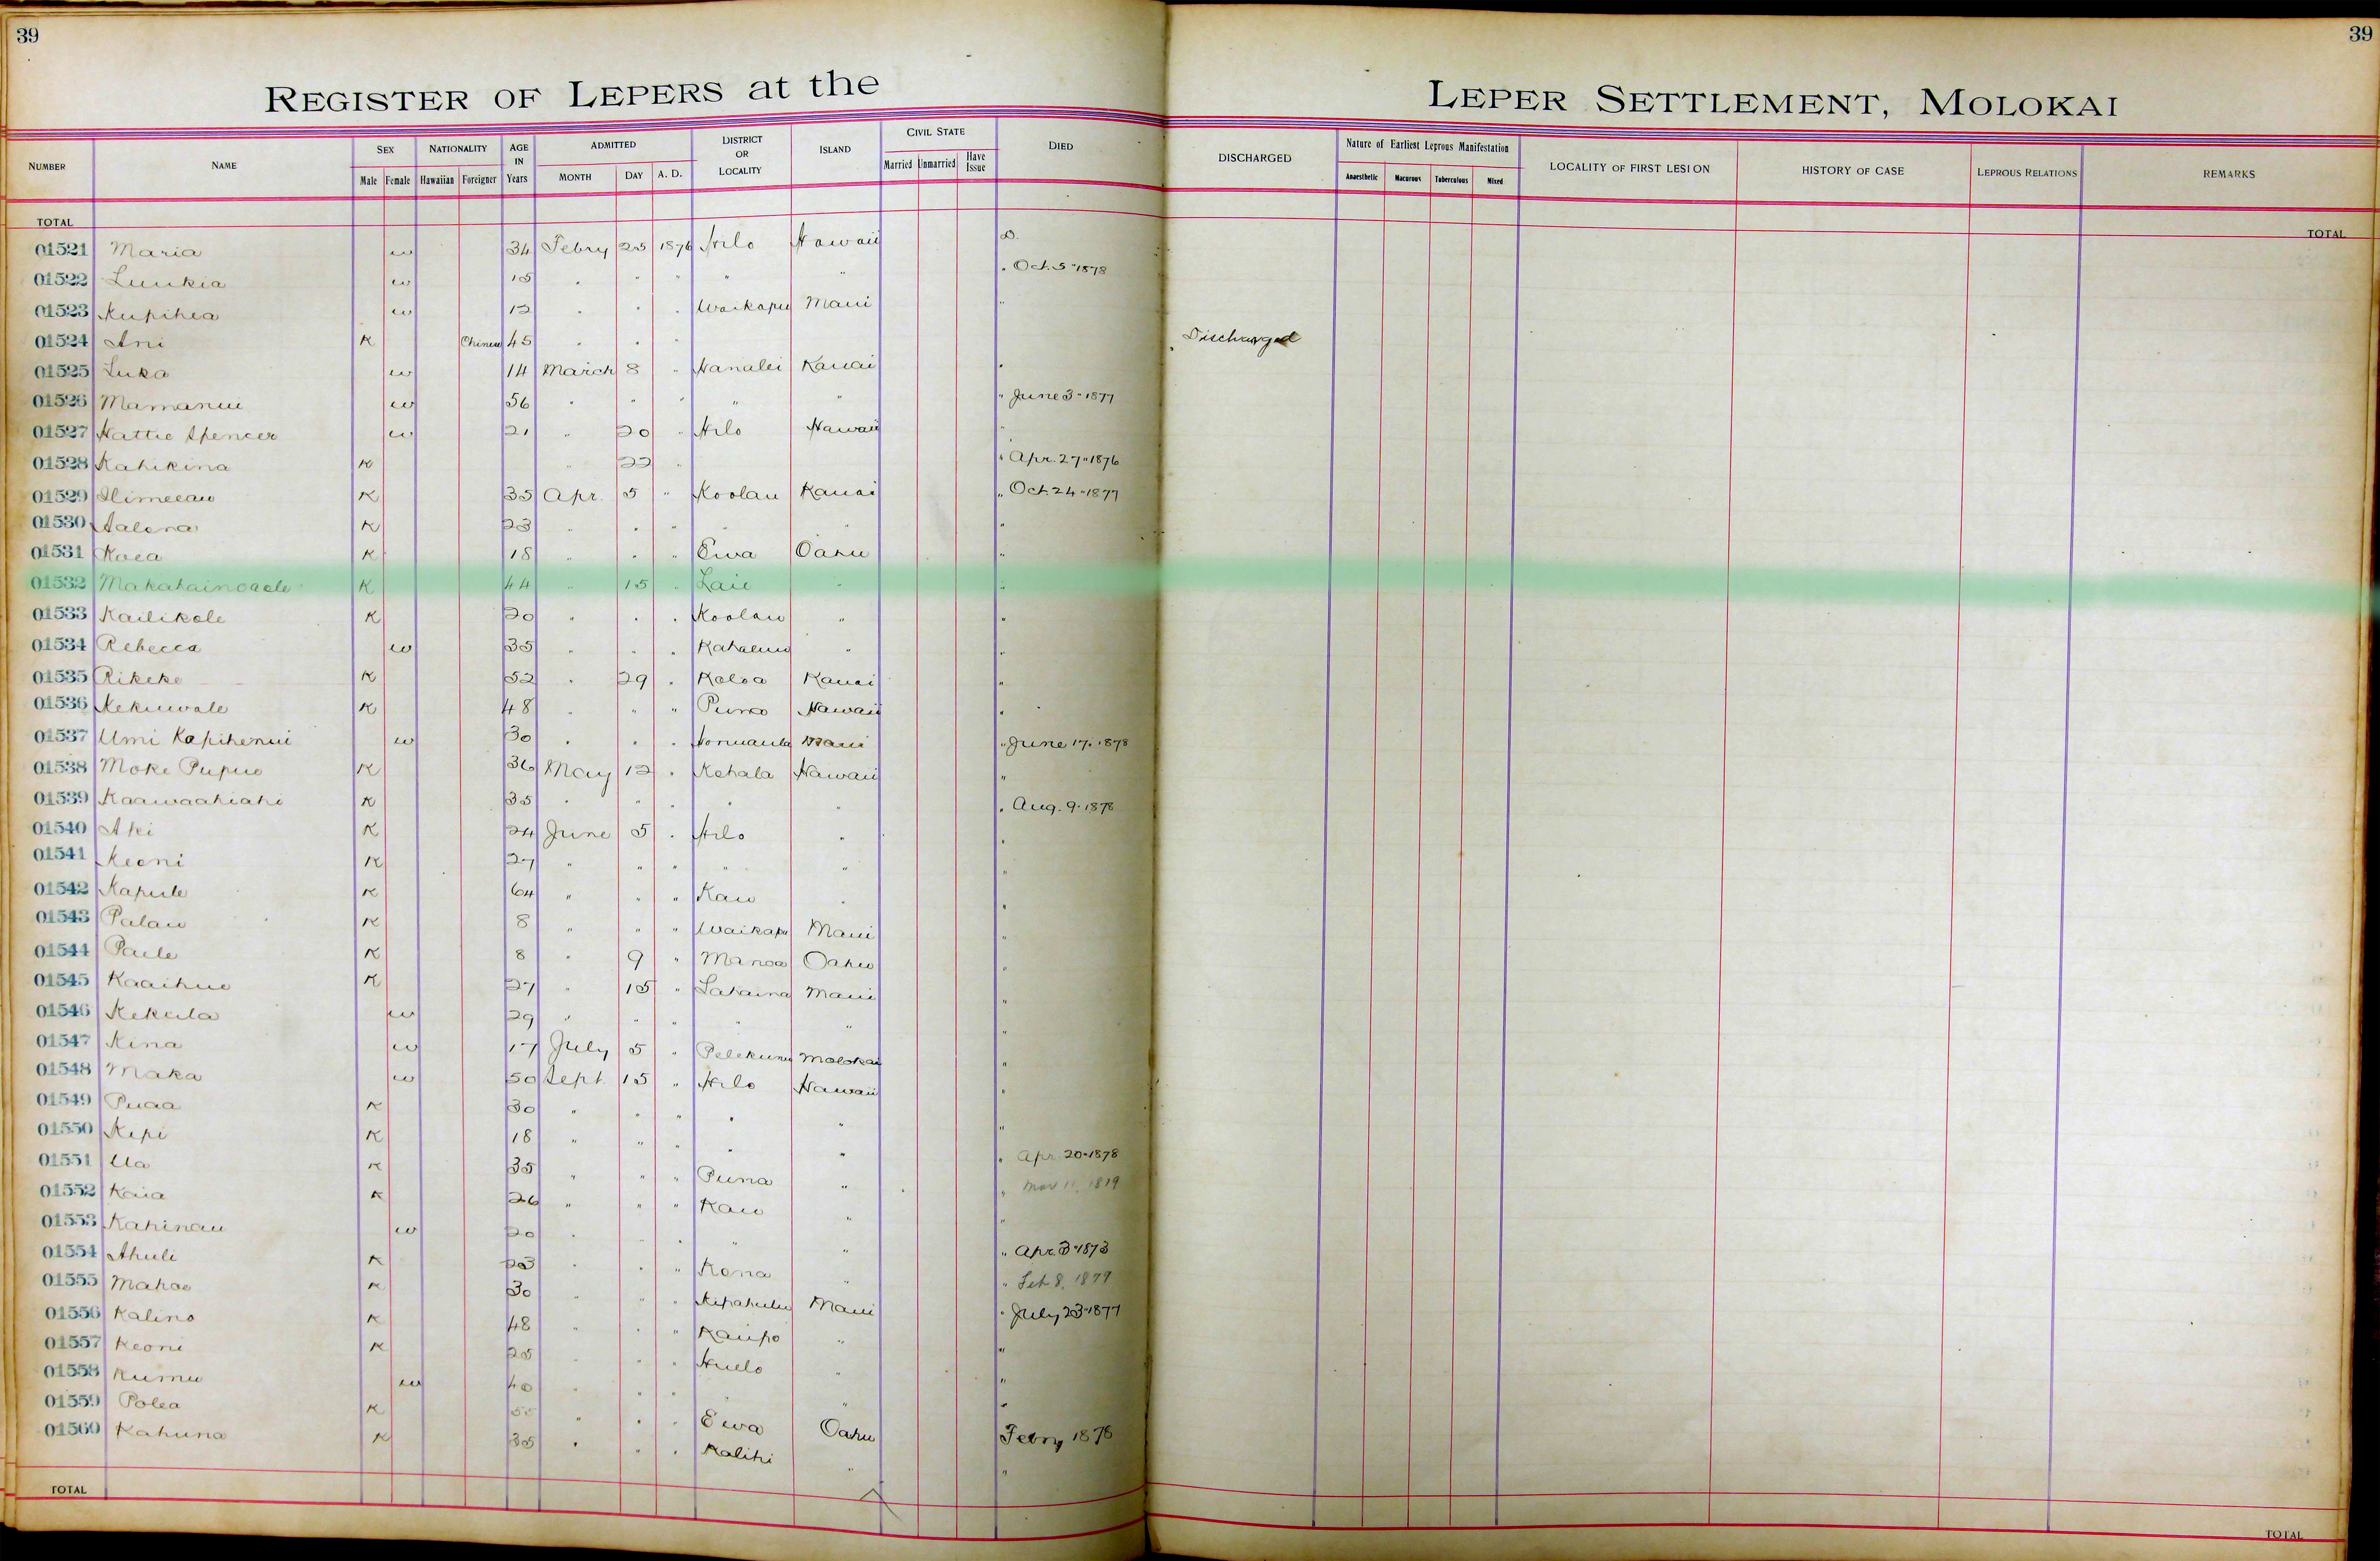 39
39
REGISTER OF LEPERS at the LEPER SETTLEMENT, MOLOKAI
NUMBER NAME SEX NATIONALITY AGE IN Years ADMITTED DISTRICT OR LOCALITY ISLAND CIVIL STATE DIED DISCHARGED Nature of Earliest Leprous Manifestation LOCALITY OF FIRST LESION HISTORY OF CASE LEPROUS RELATIONS REMARKS
Male Female Hawaiian Foreigner MONTH DAY A. D. Married Unmarried Have Issue Anaesthetic Macurous Tuberculous Mixed
TOTAL TOTAL
01521 Maria w 34 Febry 25 1876 Hilo Hawaii D.
01522 Luukia w 15 " " " " " " Oct. 5-1878
01523 Kupihea w 12 " " " Waikapu Maui "
01524 Ani K Chinese 45 " " " Discharged
01525 Luka w 14 March 8 " Hanalei Kauai "
01526 Mamanui w 56 " " " " " " June 3-1877
01527 Hattie Spencer w 21 " 20 " Hilo Hawaii "
01528 Kahikina K " 22 " " Apr. 27-1876
01529 K 35 Apr. 5 " Koolau Kauai " Oct. 24-1877
01530 Aalona K 23 " " " " " "
01531 Koea K 18 " " " Ewa Oahu "
01532 Makahainoaole K 44 " 15 " Laie " "
01533 Kailikole K 20 " " " Koolau " "
01534 Rebecca w 35 " " " Kahaluu " "
01535 Rikeke K 52 " 29 " Koloa Kauai "
01536 Kekuwale K 48 " " " Puna Hawaii "
01537 Umi Kapihenui w 30 " " " Honuaula Maui " June 17-1878
01538 Moke Pupuo K 36 May 12 " Kohala Hawaii "
01539 Kaawaahiahi K 35 " " " " " " Aug. 9-1878
01540 Aki K 24 June 5 " Hilo " "
01541 Keoni K 27 " " " " " "
01542 Kapule K 64 " " " Kau " "
01543 Palau K 8 " " " Waikapu Maui "
01544 Paele K 8 " 9 " Manoa Oahu "
01545 Kaaihue K 27 " 15 " Lahaina Maui "
01546 Kekula w 29 " " " " " "
01547 Kina w 17 July 5 " Pelekunu Molokai "
01548 Maka w 50 Sept. 15 " Hilo Hawaii "
01549 Puaa K 30 " " " " " "
01550 Kepi K 18 " " " " " "
01551 Ua K 35 " " " Puna " " Apr. 20-1878
01552 Kaia K 26 " " " Kau " " Mar 11, 1879
01553 Kahinau w 20 " " " " " "
01554 Ahuli K 23 " " " Kona " " Apr. 3-1873
01555 Mahoe K 30 " " " Kipahulu Maui " Feb 8, 1879
01556 Kalino K 48 " " " Kaupo " " July 23-1877
01557 Keoni K 25 " " " Huelo " "
01558 Kumu w 40 " " " " "
01559 Polea K 55 " " " Ewa Oahu "
01560 Kahuna K 35 " " " Kalihi " Febry 1878
"
TOTAL TOTAL